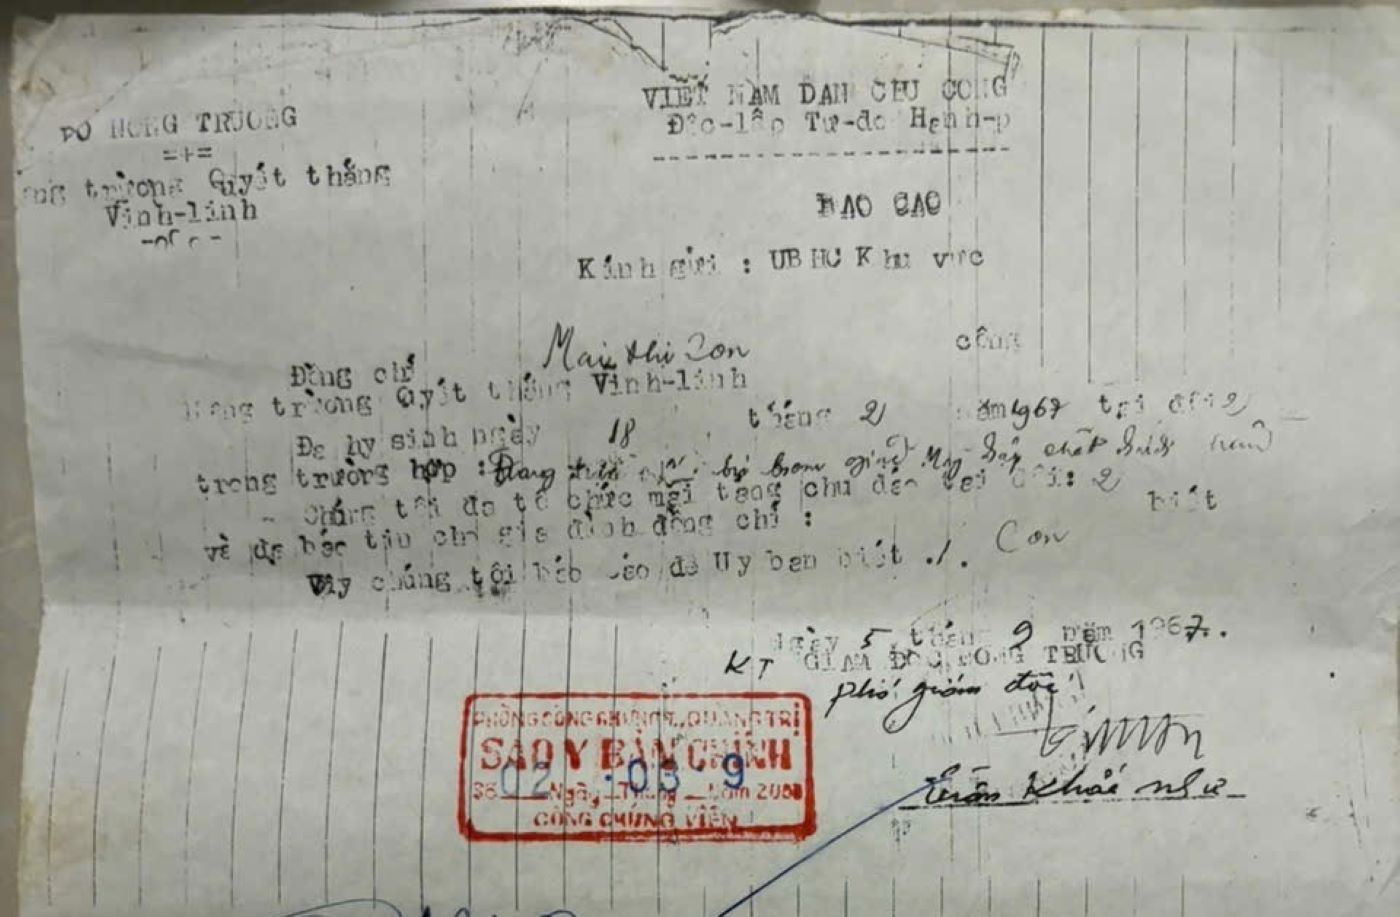 BỘ NÔNG TRƯỜNG
=+=
trường Quyết thắng
Vĩnh-linh
VIỆT NAM DAN CHU CONG
Độc-lập Tự-do Hạnh-p
BAO CAO
Kính gửi : UBHC Khu vực
Đồng chí Mai thi Con công
trường Quyết thắng Vĩnh-linh
Đa hy sinh ngày 18 tháng 2 năm 1967 tại đội 2
trong trường hợp : Đang bị bom giặc Mỹ
Chúng tôi đa tổ chức mai tạng chu đáo tại đội: 2
và đa báo tin cho gia đình đồng chí : Con biết
Vậy chúng tôi báo cáo để Uy ban biết ./.
Ngày 5 tháng 9 năm 1967.
KT GIAM ĐOC NONG TRUONG
Phó giám đốc
Trần Khải Như
PHÒNG CÔNG CHỨNG QUẢNG TRỊ
SAO Y BẢN CHÍNH
02 03 9
Số Ngày Tháng Năm 200
CÔNG CHỨNG VIÊN